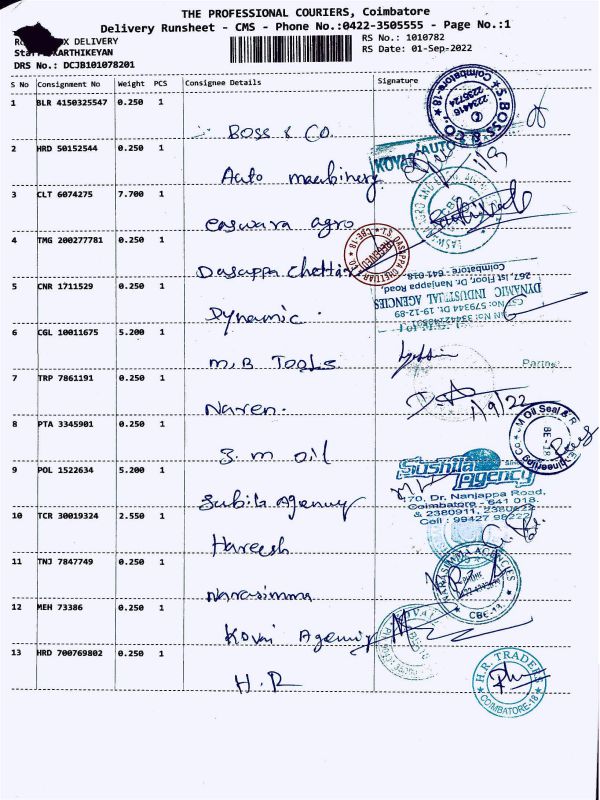 THE PROFESSIONAL COURIERS, Coimbatore
Delivery Runsheet - CMS - Phone No.:0422-3505555 - Page No.:1
DELIVERY
RS No.: 1010782
KARTHIKEYAN
RS Date: 01-Sep-2022
DRS No.: DCJB101078201
S No Consignment No Weight PCS Consignee Details Signature
1 BLR 4150325547 0.250 1
Boss & Co
S. BOSS & CO.
2234416
2235724
Coimbatore-18
2 HRD 50152544 0.250 1
Auto machinery
KOVAI AUTO
3 CLT 6074275 7.700 1
easwara agro
4 TMG 200277781 0.250 1
Dasappa Chettiar
T.S. DASAPPA CHETTIAR & CO
CBE-18
RECEIVED
5 CNR 1711529 0.250 1
Dynamic
DYNAMIC INDUSTRIAL AGENCIES
267, Ist Floor, Dr. Nanjappa Road,
Coimbatore - 641 018
6 CGL 10011675 5.200 1
M.B TOOLS
7 TRP 7861191 0.250 1
Naren
1/9/22
8 PTA 3345901 0.250 1
S.M oil
M Oil Seal &
Engineering Co
9 POL 1522634 5.200 1
Subila Agency
Sushila Agency
170, Dr. Nanjappa Road,
Coimbatore - 641 018.
& 2380911, 2380822
Cell : 99427 98222
10 TCR 30019324 2.550 1
Hareesh
11 TNJ 7847749 0.250 1
Narasimma
NARASIMMA AGENCIES
CBE-18
12 MEH 73386 0.250 1
Kovai Agency
13 HRD 700769802 0.250 1
H.R
H.R. TRADERS
COIMBATORE-18